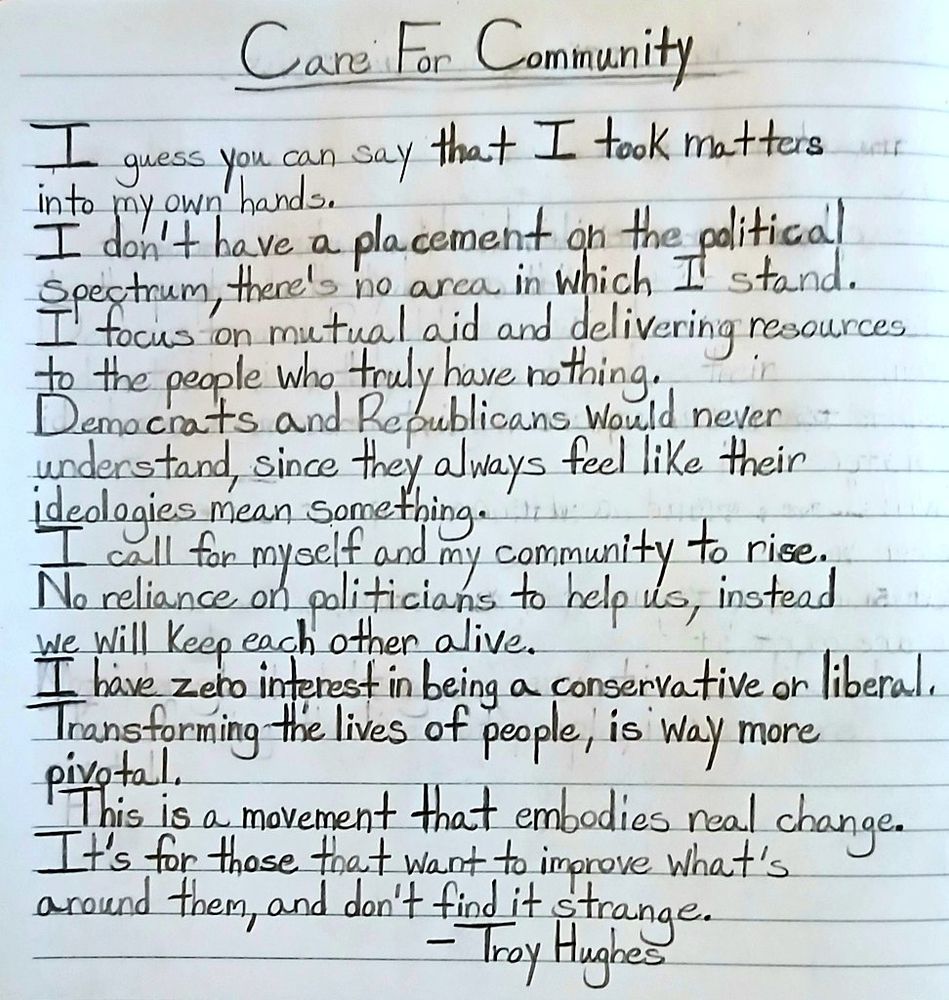 Care For Community
I guess you can say that I took matters
into my own hands.
I don't have a placement on the political
spectrum, there's no area in which I stand.
I focus on mutual aid and delivering resources
to the people who truly have nothing.
Democrats and Republicans would never
understand, since they always feel like their
ideologies mean something.
I call for myself and my community to rise.
No reliance on politicians to help us, instead
we will keep each other alive.
I have zero interest in being a conservative or liberal.
Transforming the lives of people, is way more
pivotal.
This is a movement that embodies real change.
It's for those that want to improve what's
around them, and don't find it strange.
- Troy Hughes